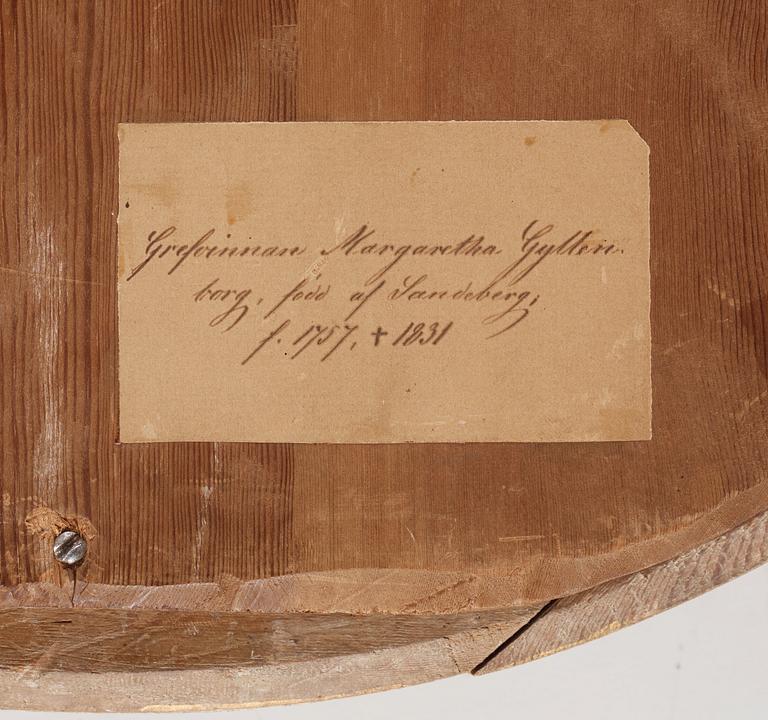 Grefvinnan Margaretha Gyllen-
borg, född af Sandeberg;
f. 1757, † 1831